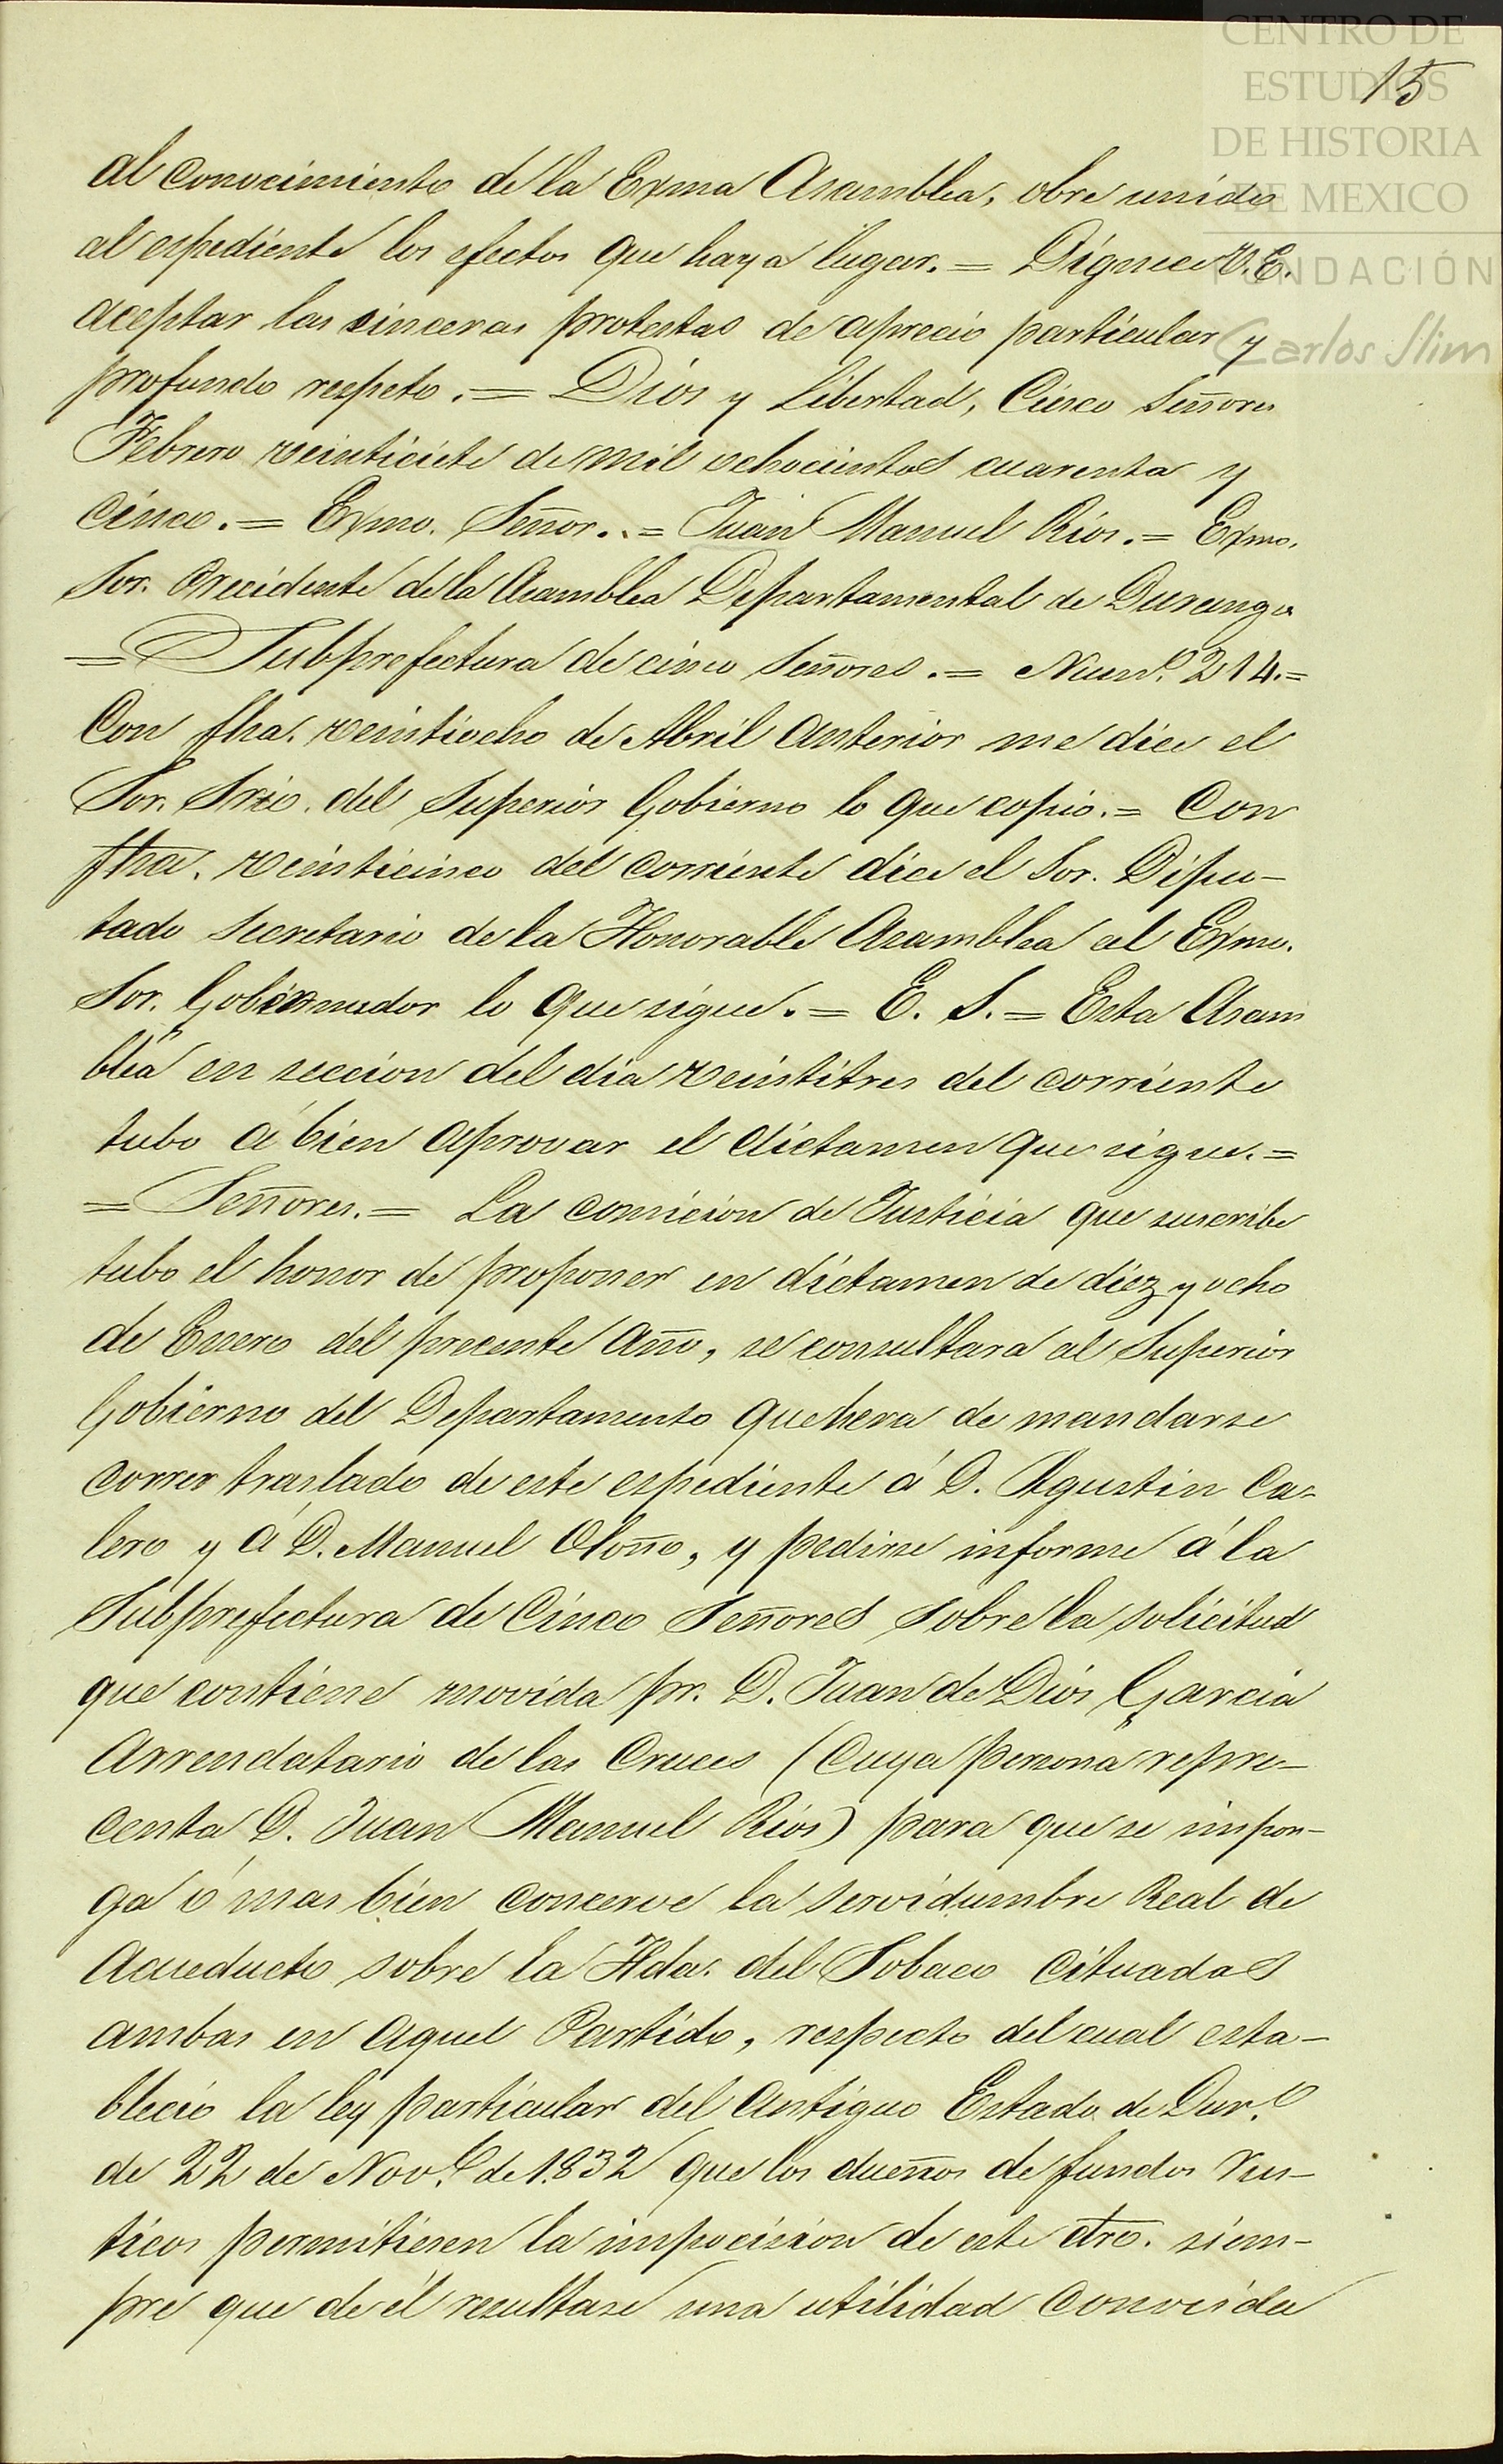 CENTRO DE
ESTUDIOS
DE HISTORIA
DE MEXICO
FUNDACIÓN
Carlos Slim
15
al conocimiento de la Exma Asamblea, obre unido
al espediente los efectos que haya lugar. = Dígnece V. E.
aceptar las sinceras protestas de aprecio particular y
profundo respeto. = Dios y Libertad, Cinco Señores
Febrero veinticiete de mil ochocientos cuarenta y
cinco. = Exmo. Señor. = Juan Manuel Rios. = Exmo.
Sor. Precidente de la Asamblea Departamental de Durango
= Subprefectura de cinco Señores. = Num.º 214. =
Con fha. veintiocho de Abril anterior me dice el
Sor. Srio. del Superior Gobierno lo que copio. = Con
fha. veinticinco del corriente dice el Sor. Dipu-
tado Secretario de la Honorable Asamblea al Exmo.
Sor. Gobernador lo que sigue. = E. S. = Esta Asam
blea en seccion del dia veintitres del corriente
tubo á bien aprovar el dictamen que sigue. =
= Señores. = La comicion de Justicia que suscribe
tubo el honor de proponer en dictamen de diez y ocho
de Enero del precente año, se consultara al Superior
Gobierno del Departamento que hera de mandarse
correr traslado de este espediente á D. Agustin Ca-
lero y á D. Manuel Oloño, y pedirse informe á la
Subprefectura de Cinco Señores sobre la solicitud
que contiene movida pr. D. Juan de Dios Garcia
Arrendatario de las Cruces (cuya persona repre-
centa D. Juan Manuel Rios) para que se impon-
ga ó mas bien concerve la servidumbre Real de
Aqueducto sobre la Hda. del Sobaco cituadas
ambas en aquel Partido, respecto del cual esta-
bleció la ley particular del antiguo Estado de Dur.º
de 22 de Nov.e de 1832 que los dueños de fundos rus-
ticos permitiesen la impocision de este dro. siem-
pre que de él resultase una utilidad conocida